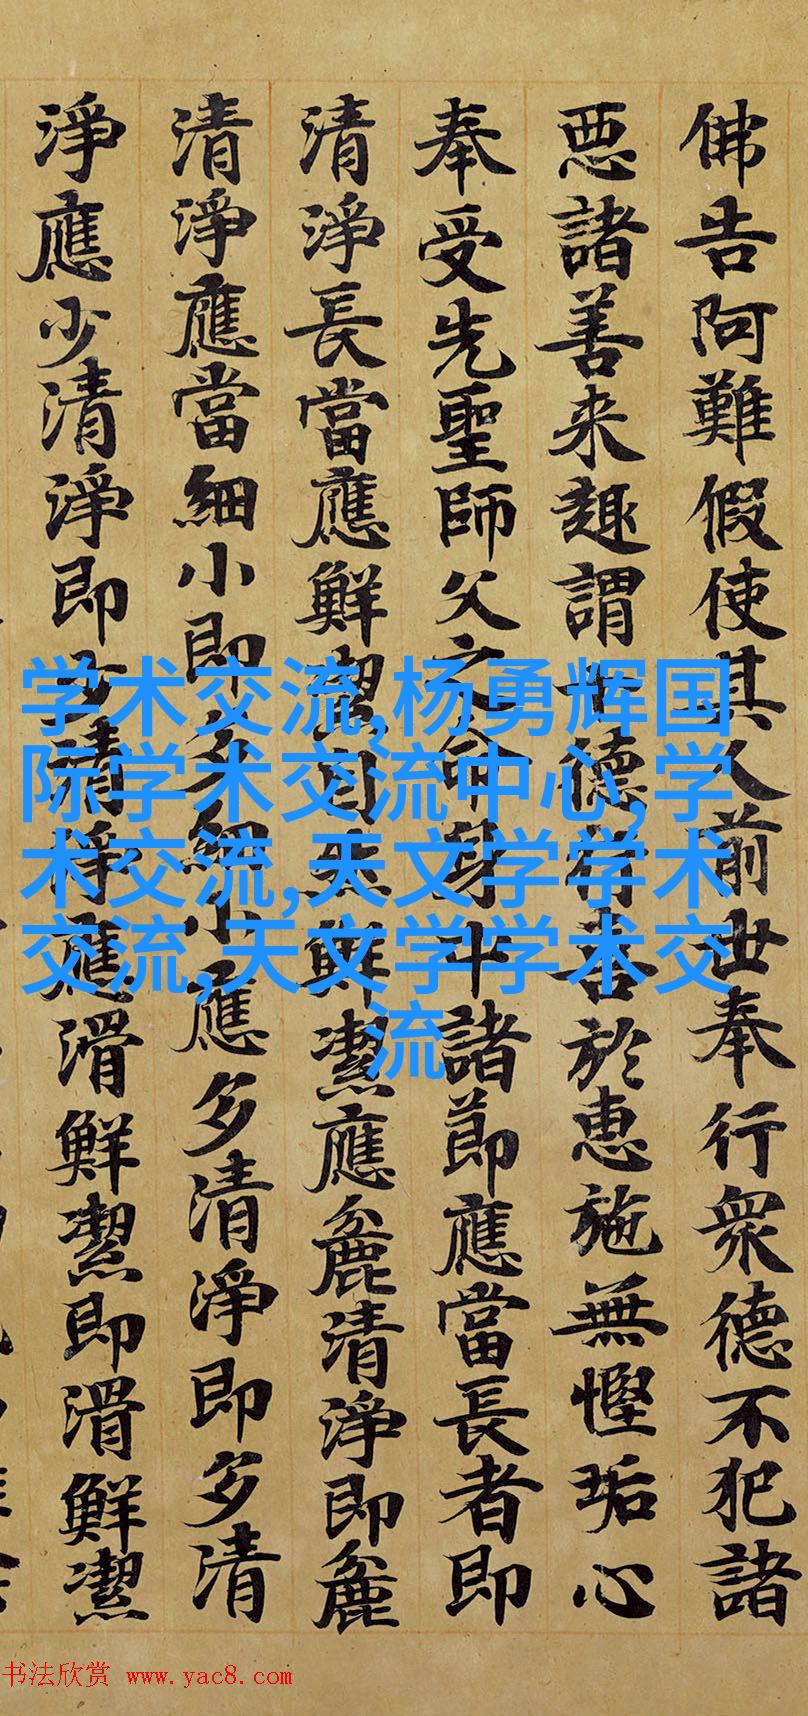 佛告阿難假使其人前世奉行眾德不犯諸
惡諸善来趣謂德善於惠施無慳垢心
奉受先聖師父之命身諸節應當長者即
清淨長當應鮮潔鮮潔應麁清淨即麁
清淨應當細小即多細小應多清淨即多清
淨應少清淨即少清淨應滑鮮潔即滑鮮潔
学术交流,杨勇辉国
际学术交流中心,学
术交流,天文学学术
交流,天文学学术交
流
书法欣赏 www.yac8.com